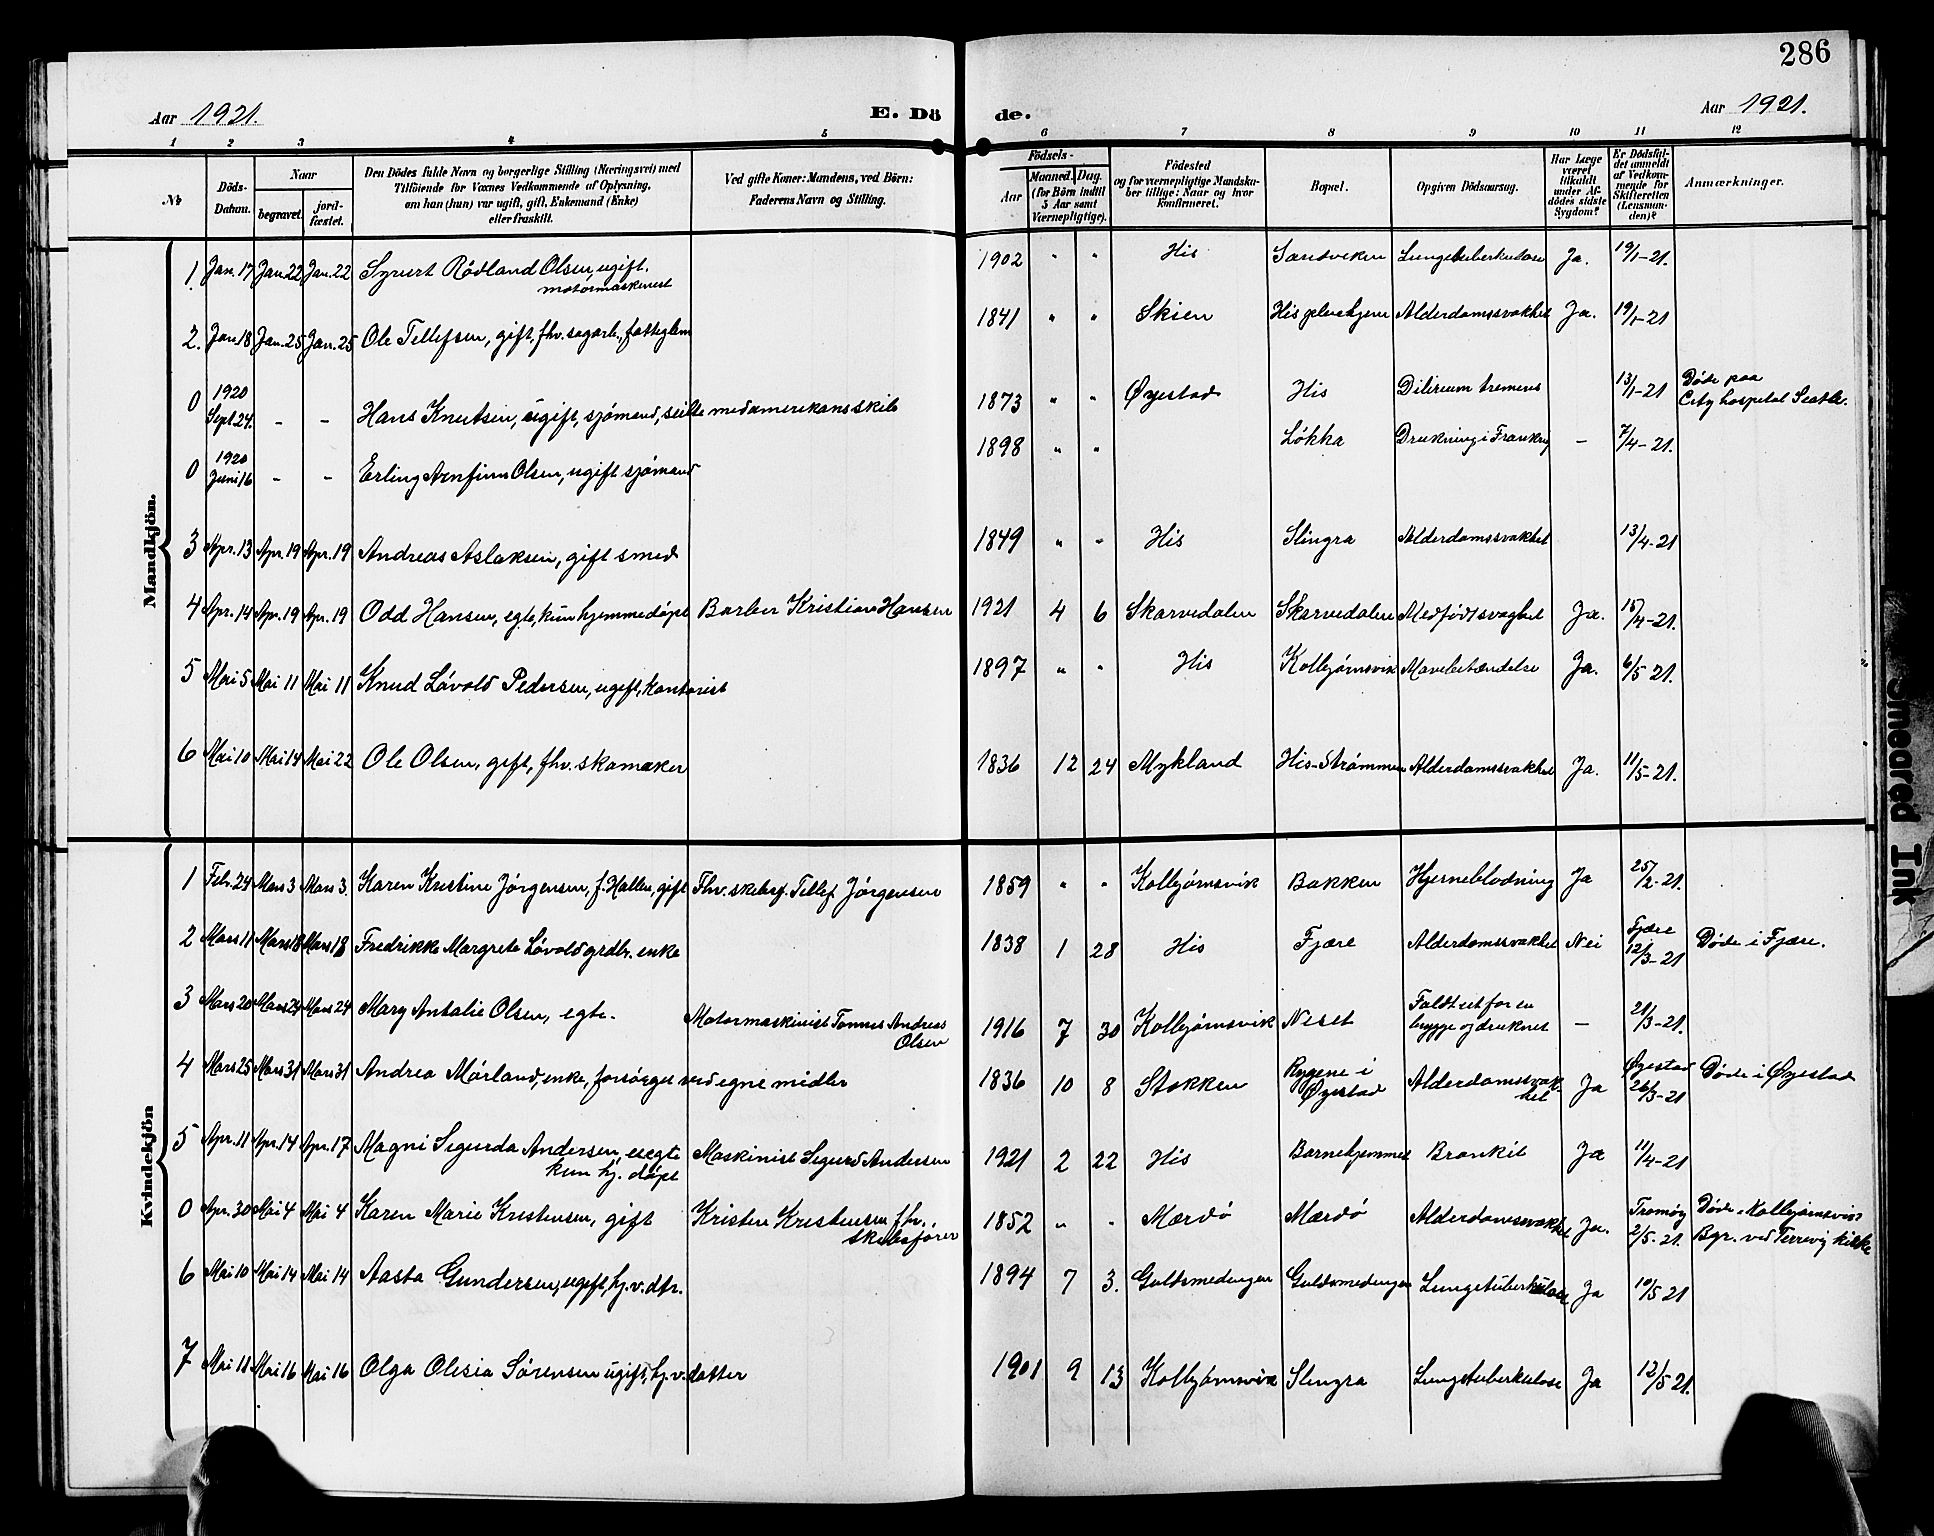 286
Aar 1921. E. Dö de. Aar 1921.
1 2 3 4 5 6 7 8 9 10 11 12
№ Döds-Datum. Naar begravet. jordfæstet. Den Dödes fulde Navn og borgerlige Stilling (Næringsvei) med Tilföiende for Voxnes Vedkommende af Oplysning, om han (hun) var ugift, gift, Enkemand (Enke) eller fraskilt. Ved gifte Koner: Mandens, ved Börn: Faderens Navn og Stilling. Födsels- Aar Maaned. Dag. (for Börn indtil 5 Aar samt Værnepligtige). Födested og for værnepligtige Mandskaber tillige: Naar og hvor konfirmeret. Bopæl. Opgiven Dödsaarsag. Har Læge været tilkaldt under Afdödes sidste Sygdom? Er Dödsfaldet anmeldt af Vedkommende for Skifteretten (Lensmanden)? Anmærkninger.
Mandkjön.
1. Jan. 17 Jan. 22 Jan. 22 Syvert Rödland Olsen, ugift, motormaskinist 1902 " " His Sandviken Lungetuberkulose Ja. 19/1-21.
2. Jan. 18 Jan. 25 Jan. 25 Ole Tellefsen, gift, fhv. sagarb., fattiglem 1841 " " Skien His pleiehjem Alderdomssvakhet Ja. 19/1-21
0 1920 Sept. 24. - - Hans Knutsen, ugift, sjömand, seilte med amerikansk skib 1873 " " Øyestad His Dilirium tremens 13/1-21 Döde paa City hospital Seatle.
0 1920 Juni 16 - - Erling Arnfinn Olsen, ugift sjömand 1898 " " Lökka Drukning i Frankrig - 7/4-21.
3 Apr. 13 Apr. 19 Apr. 19 Andreas Aslaksen, gift smed 1849 " " His Slingra Alderdomssvakhet 13/4-21
4 Apr. 14 Apr. 19 Apr. 19 Odd Hansen, egte, kun hjemmedöpt Barber Kristian Hansen 1921 4 6 Skarvedalen Skarvedalen Medfödt svaghet Ja. 15/4-21.
5 Mai 5 Mai 11 Mai 11 Knud Lövold Pedersen, ugift, kontorist 1897 " " His Kolbjörnsvik Mavebetændelse Ja. 6/5-21.
6 Mai 10 Mai 14 Mai 22 Ole Olsen, gift, fhv. skomaker 1836 12 24 Mykland His-Strømmen Alderdomssvakhet Ja. 11/5-21.
Kvindekjön
1 Febr. 24 Mars 3 Mars 3. Karen Kristine Jörgensen, f. Hallen, gift Fhv. skibsf. Tellef Jörgensen 1859 " " Kolbjörnsvik Bakken Hjerneblödning Ja 25/2-21.
2 Mars 11 Mars 18 Mars 18 Fredrikke Margrete Lövold grdbr. enke 1838 1 28 His Fjære Alderdomssvakhet Nei Fjære 12/3-21 Döde i Fjære.
3 Mars 20 Mars 24 Mars 24 Mary Antalie Olsen, egte. Motormaskinist Tomes Andreas Olsen 1916 7 30 Kolbjörnsvik Neset Faldt ut for en brygge og druknet - 21/3-21.
4 Mars 25 Mars 31 Mars 31 Andrea Mörland, enke, forsörget ved egne midler 1836 10 8 Stokken Rygene i Øyestad Alderdomssvakhet Ja Øyestad 26/3-21 Döde i Øyestad
5 Apr. 11 Apr. 14 Apr. 17 Magni Sigurda Andersen, uegte kun hj. döpt Maskinist Sigurd Andersen 1921 2 22 His Barnehjemmet Bronkit Ja 11/4-21
0 Apr. 30 Mai 4 Mai 4 Karen Marie Kristensen, gift Kristen Kristensen fhv. skibsförer 1852 " " Mærdö Mærdö Alderdomssvakhet Ja. Tromöy 2/5-21. Döde i Kolbjörnsvik Bgr. ved Færvig kirke
6 Mai 10 Mai 14 Mai 14 Aasta Gundersen, ugift, hj. v. dtr. 1894 7 3. Guldsmedengen Guldsmedengen Lungetuberkulose Ja 10/5 21
7 Mai 11 Mai 16 Mai 16 Olga Olisia Sörensen ugift, hj. v. datter 1901 9 13 Kolbjörnsvik Slingra Lungetuberkulose Ja 12/5 21.
Smeared Ink